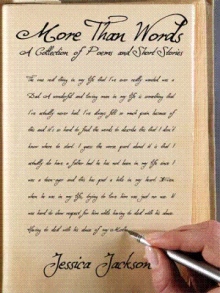 More Than Words
A Collection of Poems and Short Stories
The one real thing in my life that I've ever really wanted was a
Dad. A wonderful and loving man in my life is something that
I've actually never had. I've always felt so much pain because of
this and it's so hard to find the words to describe this that I don't
know where to start. I guess the worse part about it is that I
actually do have a father but he has not been in my life since I
was a teen-ager and this has put a hole in my heart. When
when he was in my life, trying to love him was just no use. It
was hard to show respect for him while having to deal with his abuse
Having to deal with his abuse of my
Jessica Jackson